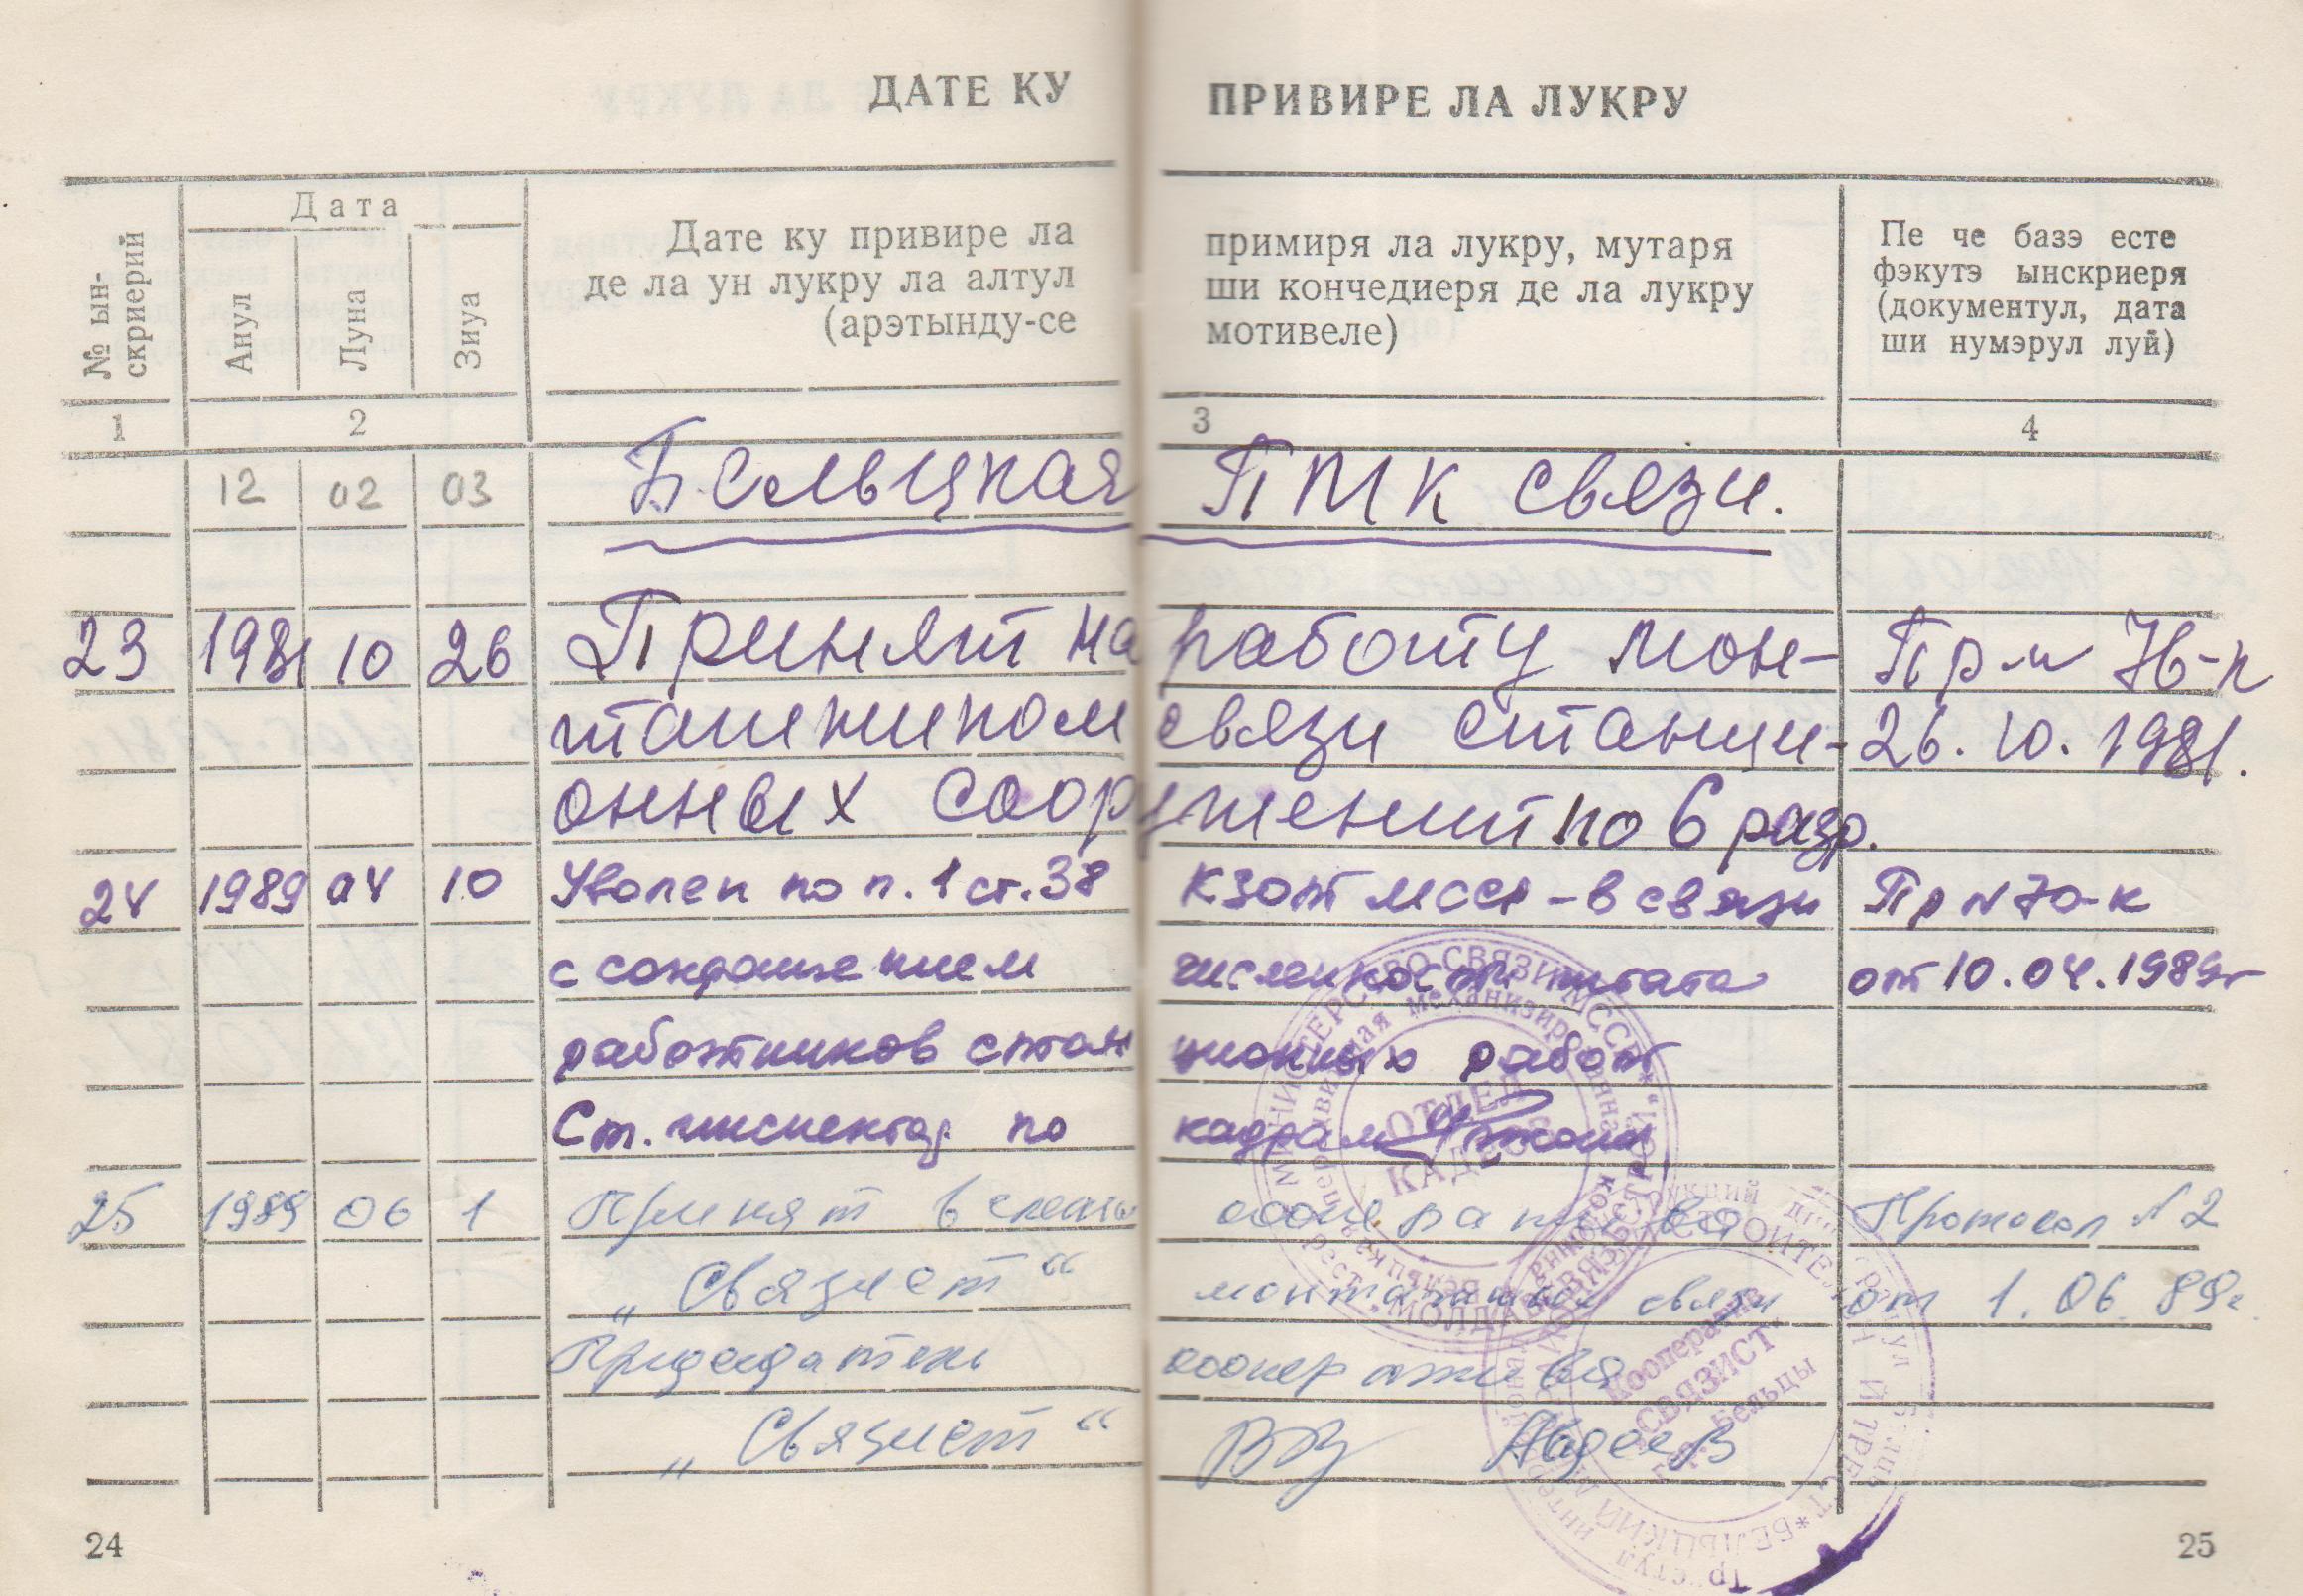 ДАТЕ КУ ПРИВИРЕ ЛА ЛУКРУ
№ ын-
скриерий
Дата
Анул
Луна
Зиуа
Дате ку привире ла примиря ла лукру, мутаря
де ла ун лукру ла алтул ши кончедиеря де ла лукру
(арэтынду-се мотивеле)
Пе че базэ есте
фэкутэ ынскриеря
(документул, дата
ши нумэрул луй)
1 2 3 4
12 02 03 Бельцкая ПМК связи.
23 1981 10 26 Принят на работу мон- Пр № 76-к
тажником связи станци- 26.10.1981.
онных сооружений по 6 разр.
24 1989 04 10 Уволен по п. 1 ст. 38 КЗОТ МССР - в связи Пр № 70-к
с сокращением численности штата от 10.04.1989г
работников станционных работ
Ст. инспектор по кадрам
25 1989 06 1 Принят в члены кооператива Протокол №2
„Связист“ монтажником связи от 1.06.89г.
Председатель кооператива
„Связист“ Авдеев
МИНИСТЕРСТВО СВЯЗИ МССР
передвижная механизированная колонна
Бельцкая
трест МОЛДАВСВЯЗЬСТРОЙ
ОТДЕЛ
КАДРОВ
Кооператив
"СВЯЗИСТ"
гор. Бельцы
24
25